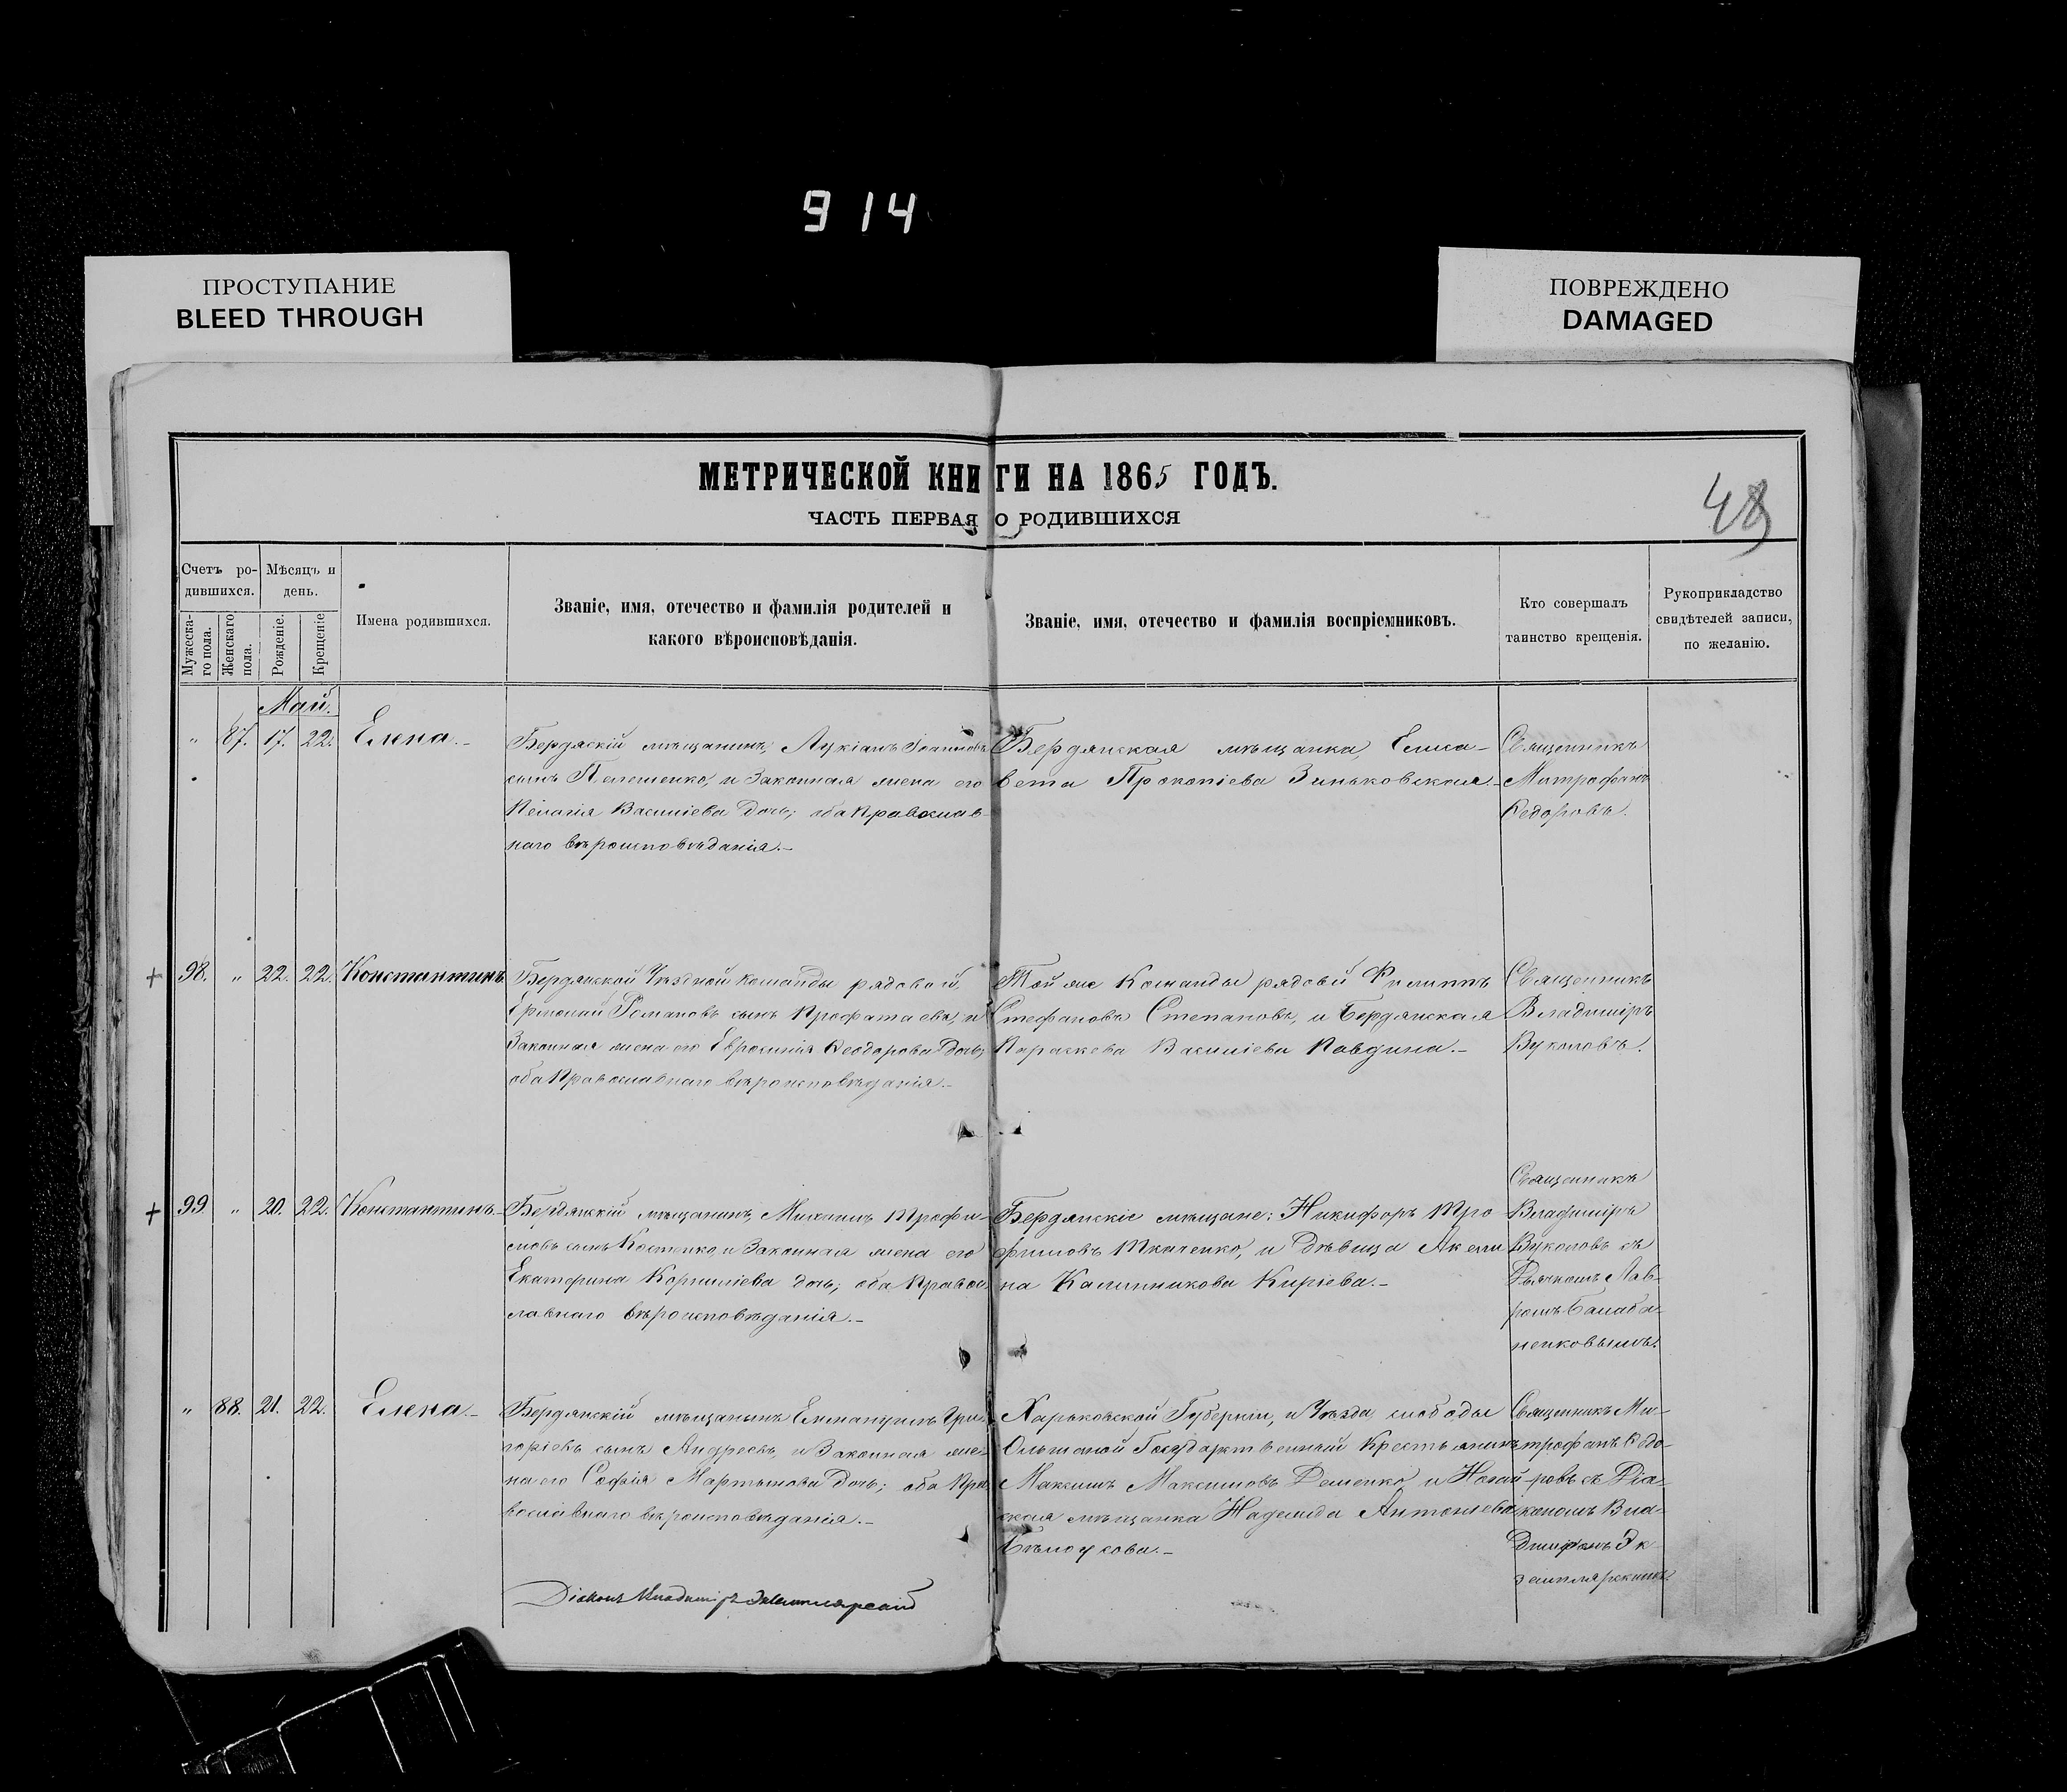 9 14
ПРОСТУПАНИЕ
BLEED THROUGH
ПОВРЕЖДЕНО
DAMAGED
МЕТРИЧЕСКОЙ КНИГИ НА 1865 ГОДЪ.
ЧАСТЬ ПЕРВАЯ О РОДИВШИХСЯ
48
Счетъ ро-
дившихся.
Мужеска-
го пола.
Женскаго
пола.
Мѣсяцъ и
день.
Рожденіе.
Крещеніе
Имена родившихся.
Званіе, имя, отечество и фамилія родителей и
какого вѣроисповѣданія.
Званіе, имя, отечество и фамилія воспріемниковъ.
Кто совершалъ
таинство крещенія.
Рукоприкладство
свидѣтелей записи,
по желанію.
Май.
" 87. 17. 22. Елена.-
Бердяскій мѣщанинъ, Лукіанъ Іоанновъ
сынъ Пелешенко, и Законная жена его
Пелагія Василіева Дочь; оба Православ-
наго вѣроисповѣданія.-
Бердянская мѣщанка, Елиса-
вета Прокопіева Зиньковская.-
Священникъ
Митрофанъ
Ѳедоровъ.
+ 98. " 22. 22. Константинъ.
Бердянской Уѣздной команды рядовой,
Романовъ сынъ и
Законная жена его Евросинія Ѳеодорова Дочь;
оба Православнаго вѣроисповѣданія.-
Той же Команды рядовой Филиппъ
Стефановъ Степановъ, и Бердянская
Параскева Василіева Павдина.-
Священникъ
Владиміръ
Вуколовъ.
+ 99 " 20. 22. Константинъ.-
Бердянскій мѣщанинъ, Михаилъ Трофи-
мовъ сынъ Костенко, и Законная жена его
Екатерина Корниліева дочь; оба Правос-
лавнаго вѣроисповѣданія.-
Бердянскіе мѣщане: Никифоръ Тро-
фимовъ Ткаченко, и Дѣвица Акели
на Калинникова Киріева.-
Священникъ
Владиміръ
Вуколовъ съ
Дьячкомъ Лав-
ромъ Балаба-
ненковымъ.
" 88. 21. 22. Елена.-
Бердянскій мѣщанинъ Еммануилъ Гри-
горіевъ сынъ Андреевъ, и Законная же-
на его Софія Мартынова Дочь; оба Пра-
вославнаго вѣроисповѣданія.-
Харьковской Губерніи, и Уѣзда слободы
Ольшаной Государственный Крестьянинъ
Максимъ Максимовъ Деменко, и Ногай-
ская мѣщанка Надежда Антоніева
Бѣлоусова.-
Священникъ Ми-
трофанъ Ѳедо-
ровъ съ Діа-
кономъ Вла-
диміромъ Эк-
земплярскимъ.
Діаконъ Владиміръ Экземплярскій